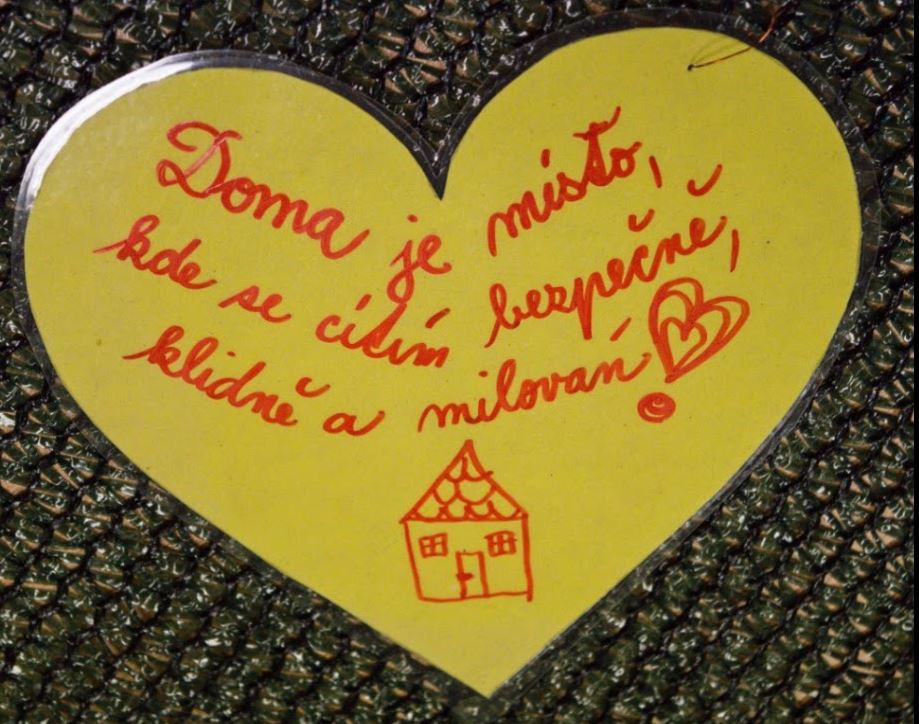 Doma je místo,
kde se cítím bezpečně,
klidně a milován